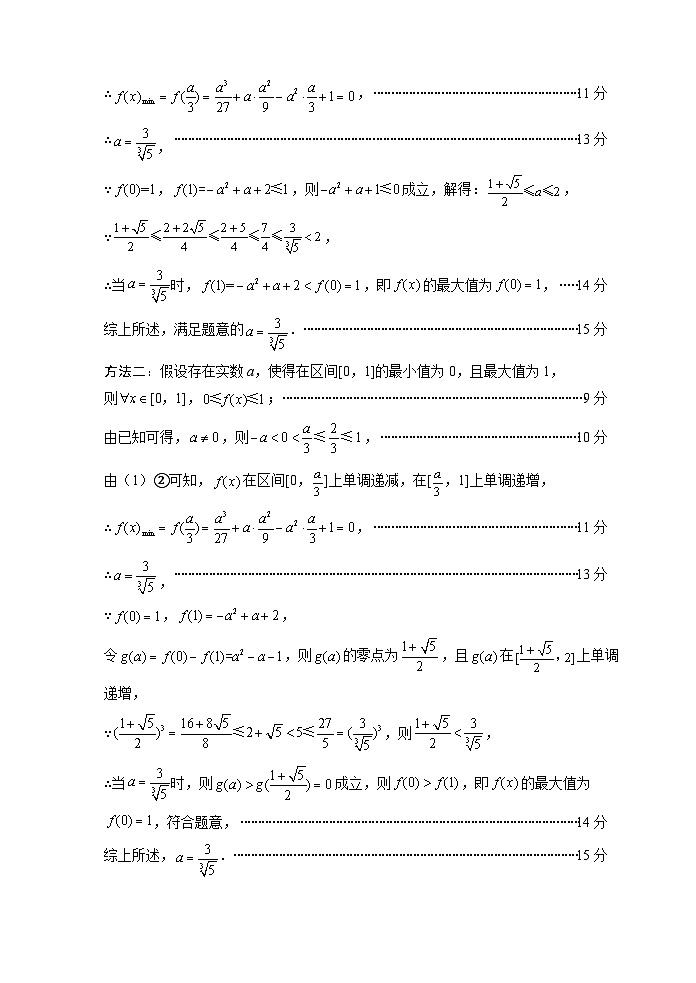 ∴ f(x)min = f(a/3) = a³/27 + a·a²/9 − a²·a/3 + 1 = 0，……………………11 分
∴ a = 3/∛5，……………………13 分
∵ f(0)=1， f(1)=−a² + a + 2≤1，则−a² + a + 1≤0成立，解得：(1+√5)/2≤a≤2，
∵ (1+√5)/2≤(2+2√5)/4≤(2+5)/4≤7/4≤3/∛5 < 2，
∴当 a = 3/∛5时， f(1)= −a² + a + 2 < f(0) = 1，即 f(x)的最大值为 f(0) = 1，……14 分
综上所述，满足题意的a = 3/∛5．……………………15 分
方法二：假设存在实数 a，使得在区间[0，1]的最小值为 0，且最大值为 1，
则∀x ∈ [0，1]，0≤f(x)≤1；……………………9 分
由已知可得，a ≠ 0，则−a < 0 < a/3 ≤ 2/3 ≤ 1，……………………10 分
由（1）②可知， f(x)在区间[0，a/3]上单调递减，在[a/3，1]上单调递增，
∴ f(x)min = f(a/3) = a³/27 + a·a²/9 − a²·a/3 + 1 = 0，……………………11 分
∴ a = 3/∛5，……………………13 分
∵ f(0) = 1， f(1) = −a² + a + 2，
令 g(a) = f(0) − f(1)=a² − a − 1，则 g(a)的零点为(1+√5)/2，且 g(a)在[(1+√5)/2，2]上单调
递增，
∵ ((1+√5)/2)³ = (16+8√5)/8 ≤2+√5 <5≤27/5 = (3/∛5)³，则(1+√5)/2 < 3/∛5，
∴当 a = 3/∛5时，则 g(a) > g((1+√5)/2) = 0成立，则 f(0) > f(1)，即 f(x)的最大值为
f(0) = 1，符合题意，……………………14 分
综上所述，a = 3/∛5．……………………15 分